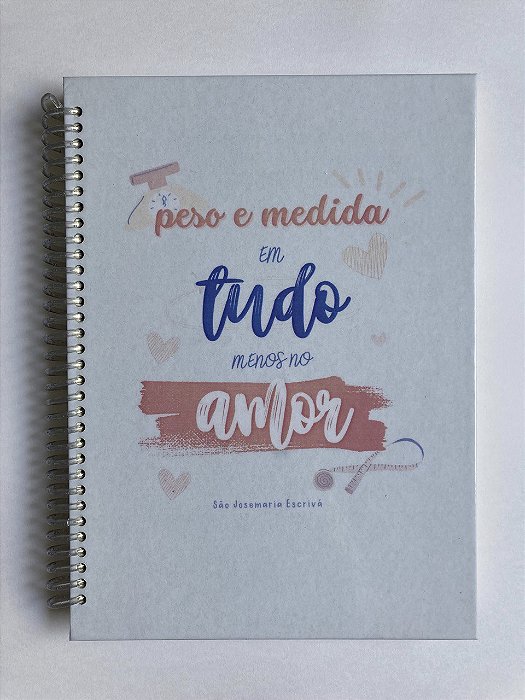 peso e medida
EM
tudo
MENOS NO
amor
São Josemaria Escrivá